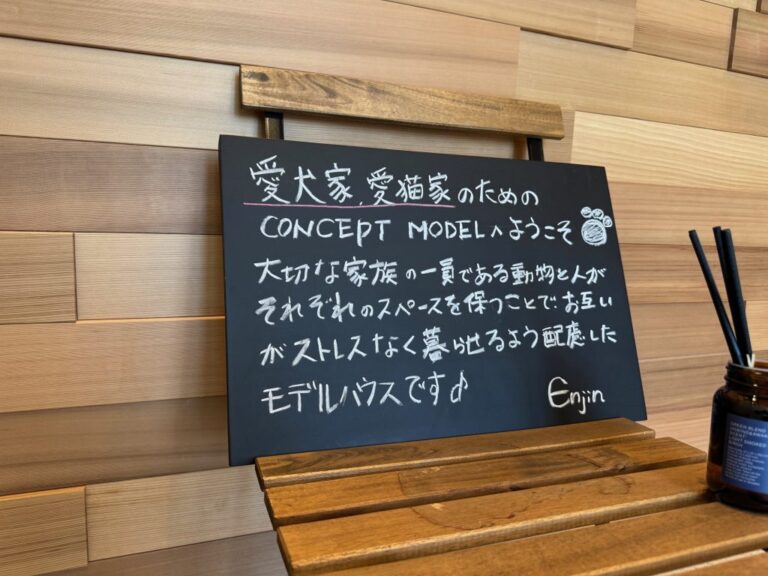 愛犬家、愛猫家のための
CONCEPT MODELへようこそ
大切な家族の一員である動物と人が
それぞれのスペースを保つことで、お互い
がストレスなく暮らせるよう配慮した
モデルハウスです♪
Enjin
GREEN BLEND